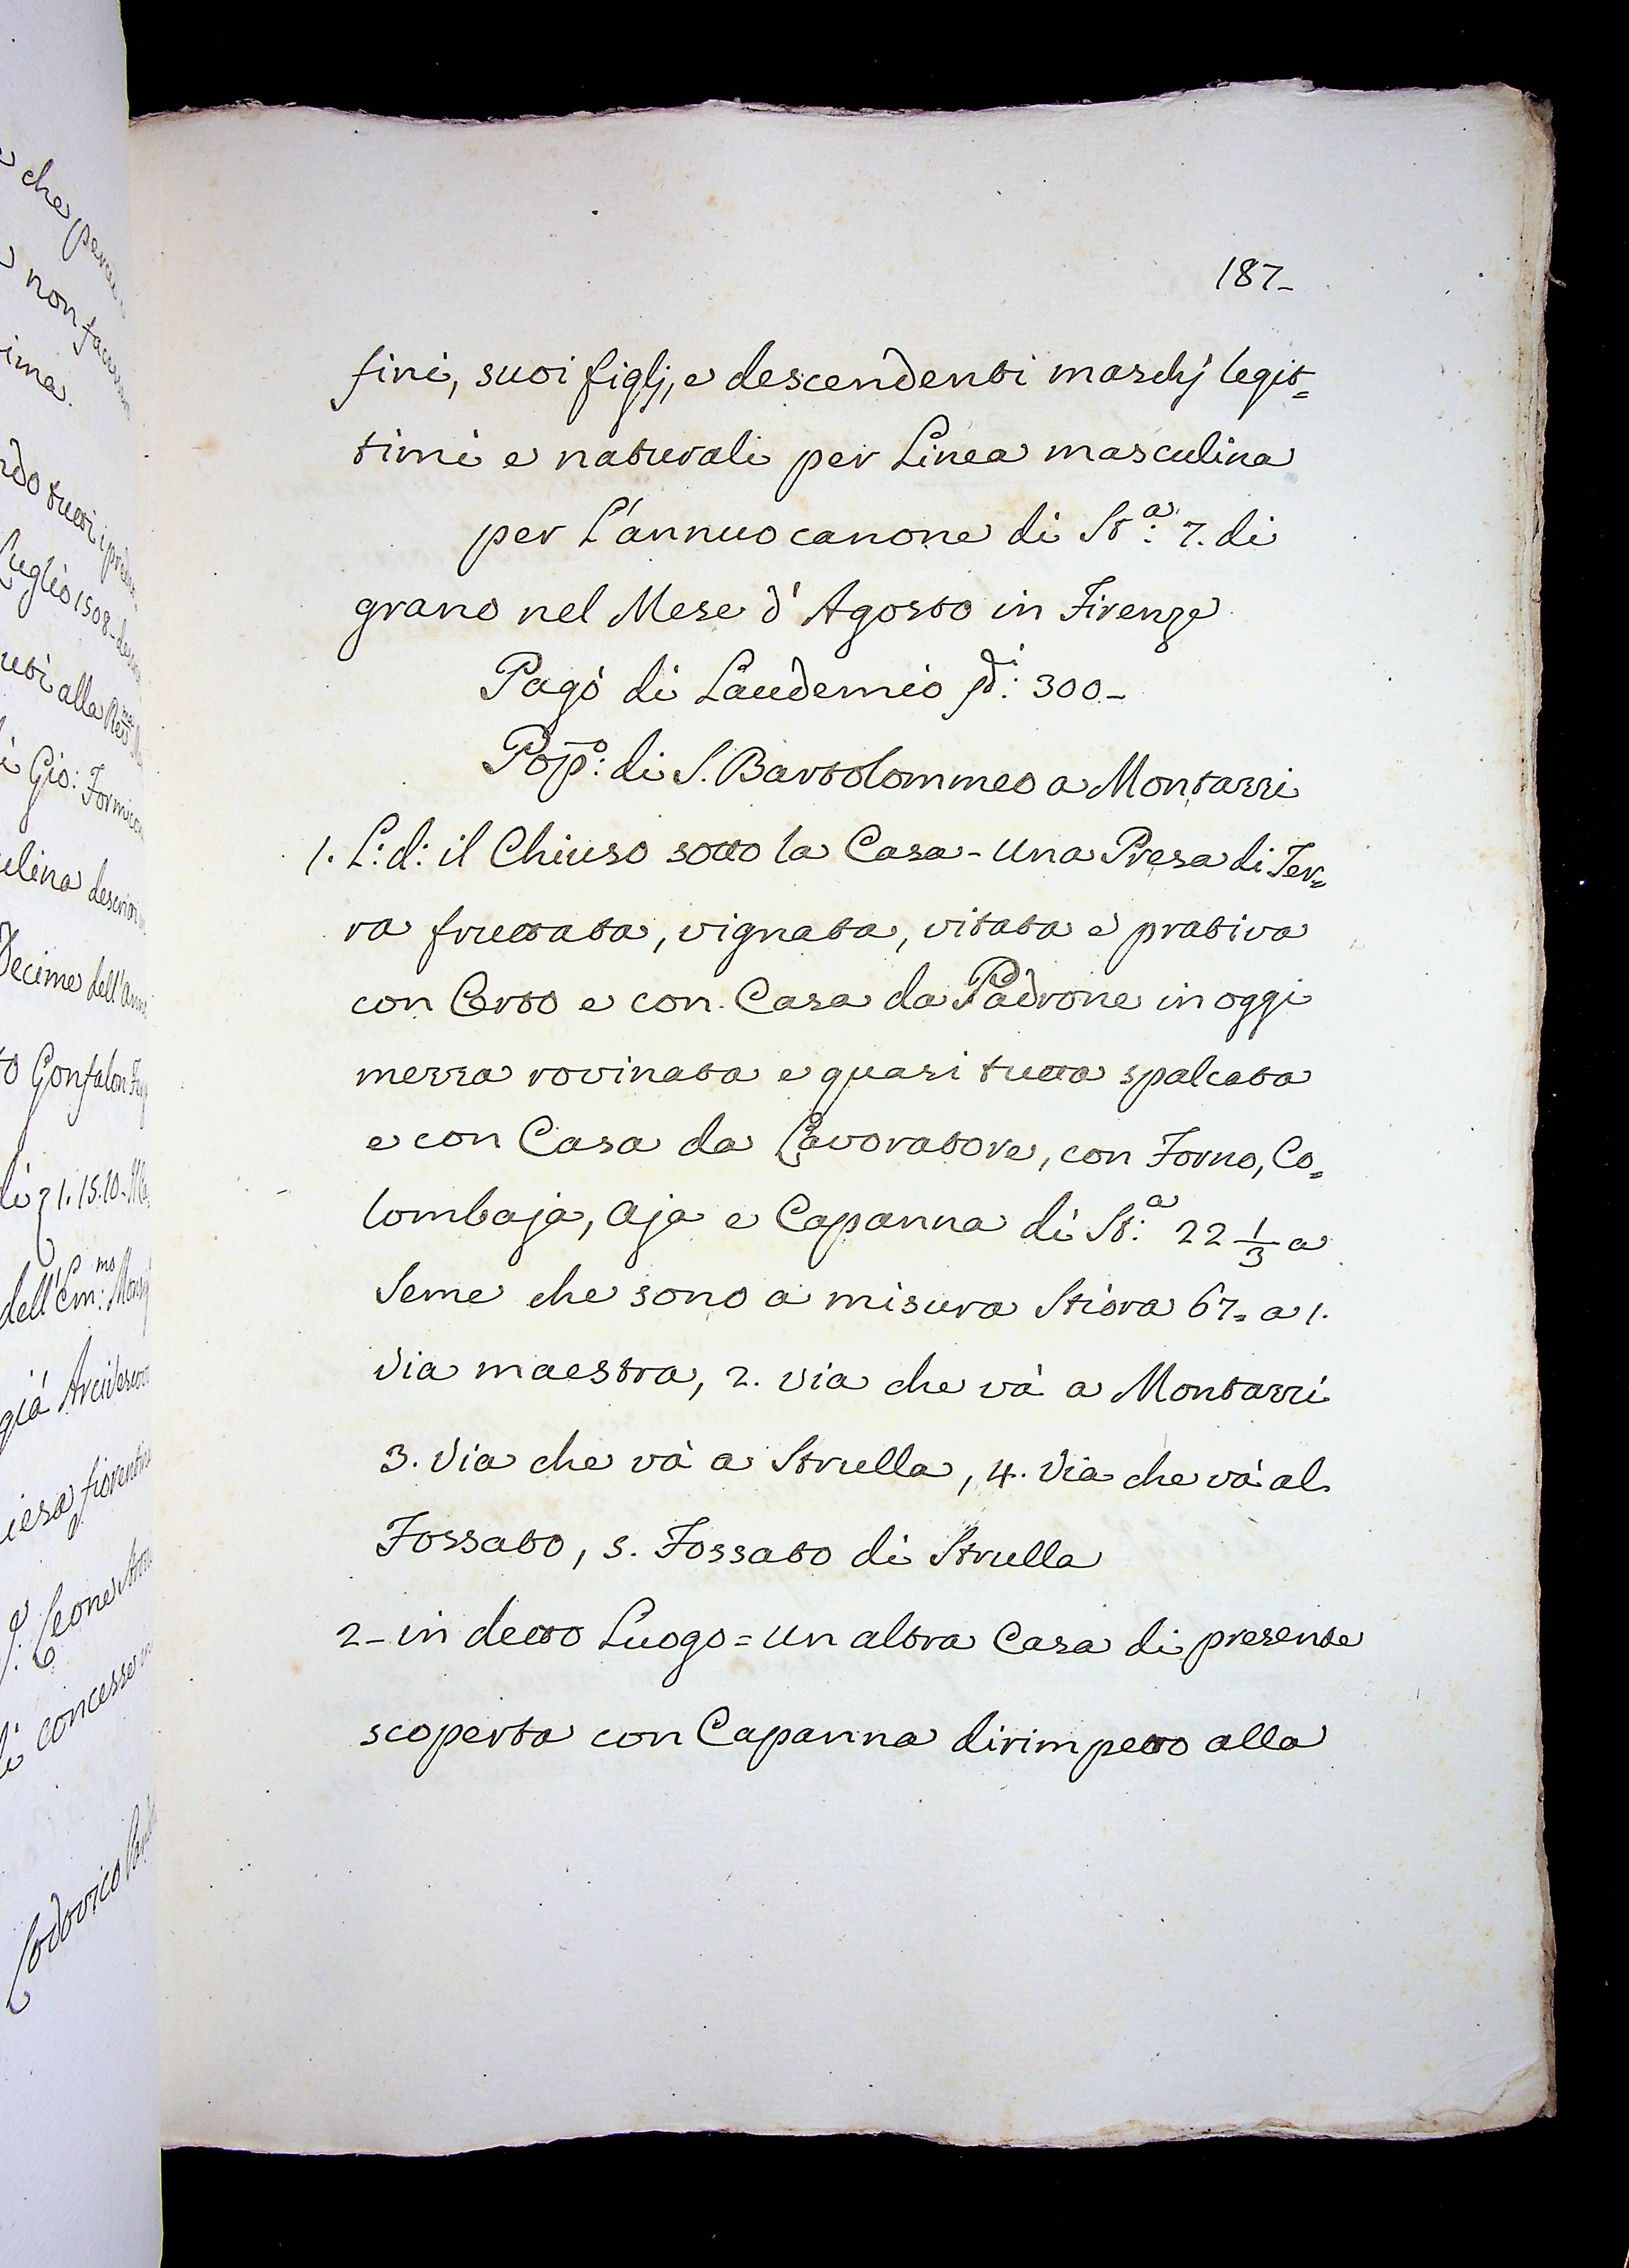 187-
fini, suoi figlj, e descendenti maschj legit=
timi e naturali per Linea masculina
per L'annuo canone di St:ª 7. di
grano nel Mese d'Agosto in Firenze
Pagò di Laudemio 300-
Popº: di S. Bartolommeo a Montazzi
1. L: d: il Chiuso sotto la Casa - Una Presa di Ter=
ra fruttata, vignata, vitata e prativa
con Orto e con Casa da Padrone in oggi
mezza rovinata e quasi tutta spalcata
e con Casa da Lavoratore, con Forno, Co=
lombaja, Aja e Capanna di St:ª 22 1/3 a
Seme che sono a misura Stiora 67= a 1.
Via maestra, 2. Via che và a Montazzi
3. Via che và a Strulla, 4. Via che và al
Fossato, 5. Fossato di Strulla
2- in detto Luogo = Un altra Casa di presente
scoperta con Capanna dirimpetto alla
che
non
ima.
Luglio 1508
alla
Gio:
Decime dell'
1. 15. 10
dell'Em:mo
già
concesse
Lodovico